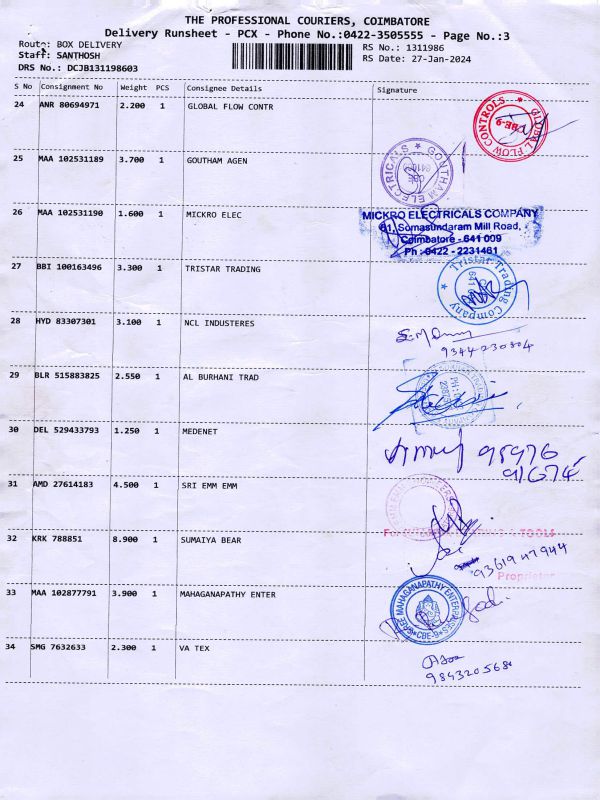 THE PROFESSIONAL COURIERS, COIMBATORE
Delivery Runsheet - PCX - Phone No.:0422-3505555 - Page No.:3
Route: BOX DELIVERY
RS No.: 1311986
Staff: SANTHOSH
RS Date: 27-Jan-2024
DRS No.: DCJB131198603
S No Consignment No Weight PCS Consignee Details Signature
24 ANR 80694971 2.200 1 GLOBAL FLOW CONTR
GLOBAL FLOW CONTROLS CBE-9
25 MAA 102531189 3.700 1 GOUTHAM AGEN
GONTHAM ELECTRICALS
26 MAA 102531190 1.600 1 MICKRO ELEC
MICKRO ELECTRICALS COMPANY
61, Somasundaram Mill Road,
Coimbatore - 641 009
Ph : 0422 - 2231461
27 BBI 100163496 3.300 1 TRISTAR TRADING
Tristar Trading Company
28 HYD 83307301 3.100 1 NCL INDUSTERES
9344230804
29 BLR 515883825 2.550 1 AL BURHANI TRAD
30 DEL 529433793 1.250 1 MEDENET
95976
91674
31 AMD 27614183 4.500 1 SRI EMM EMM
TOOLS
32 KRK 788851 8.900 1 SUMAIYA BEAR
9361947944
Proprietor
33 MAA 102877791 3.900 1 MAHAGANAPATHY ENTER
SHREE MAHAGANAPATHY ENTERPRISES CBE-9
34 SMG 7632633 2.300 1 VA TEX
9843205680